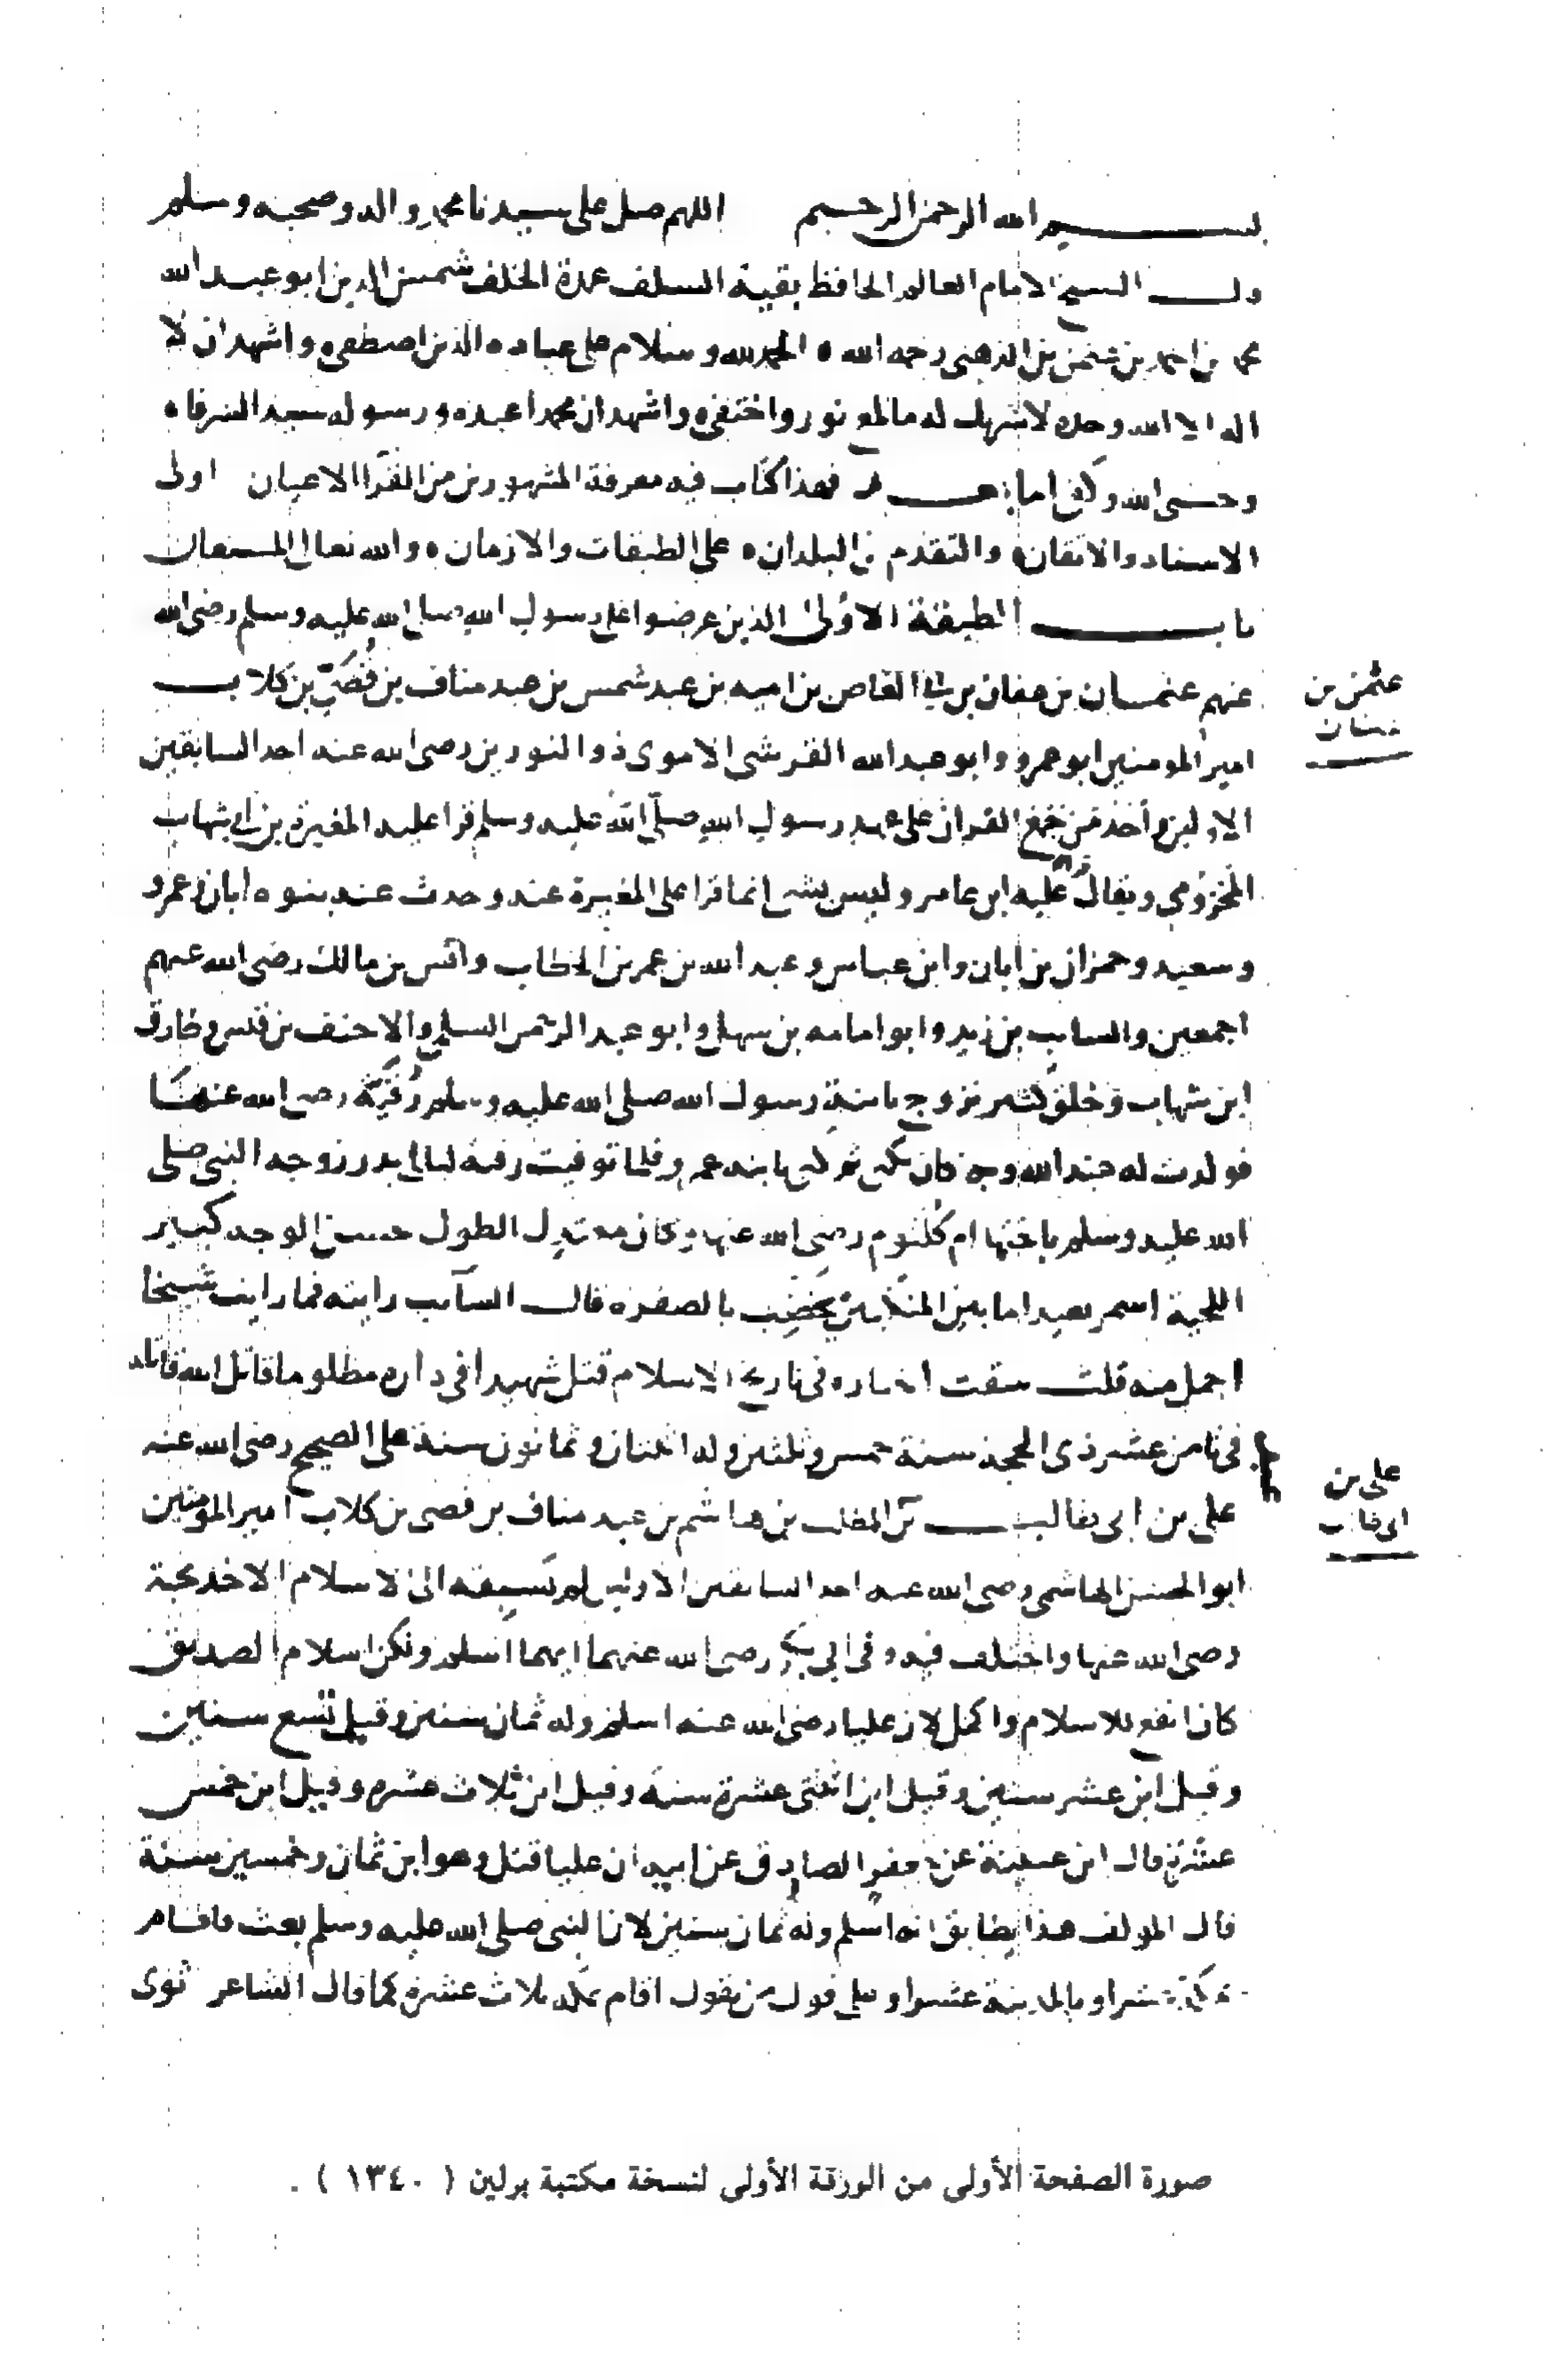 بسم الله الرحمن الرحيم اللهم صل على سيدنا محمد واله وصحبه وسلم
الشيخ الامام العالم الحافظ بقية السلف عمدة الخلف شمس الدين ابو عبد الله
محمد بن احمد بن عثمن بن الذهبى رحمه الله الحمد لله وسلام على عباده الذين اصطفى واشهد ان لا
اله الا الله وحده لا شريك له ما لمع نور واختفى واشهد ان محمدا عبده ورسوله سيد الشرفاء
وحسبى الله وكفى اما بعد فهذا كتاب فيه معرفة المشهورين من القرا الاعيان اولى
الاسناد والاتقان والتقدم فى البلدان على الطبقات والازمان والله تعالى المستعان
باب الطبقة الاولى الذين عرضوا على رسول الله صلى الله عليه وسلم رضى الله
عنهم عثمان بن عفان بن ابى العاص بن اميه بن عبد شمس بن عبد مناف بن قُصَىّ بن كلاب
عثمن بن
عفان
امير المومنين ابو عمرو وابو عبد الله القرشى الاموى ذو النورين رضى الله عنه احد السابقين
الاولين واحد من جمع القران على عهد رسول الله صلى الله عليه وسلم قرا عليه المغيرة بن ابى شهاب
المخزومي ويقال عليه ابن عامر وليس بشى انما قرا على المغيرة عنه وحدث عنه بنوه ابان وعمرو
وسعيد وحمران بن ابان وابن عباس وعبد الله بن عمر بن الخطاب وانس بن مالك رضى الله عنهم
اجمعين والسايب بن زيد وابو امامه بن سهل وابو عبد الرحمن السلمى والاحنف بن قيس وطارق
ابن شهاب وخلق كثير تزوج بابنة رسول الله صلى الله عليه وسلم رُقَيَّة رضى الله عنهما
فولدت له عبد الله وبه كان يكنى ثم كنى بابنه عمرو فلما توفيت رقية ليالى بدر زوجه النبى صلى
الله عليه وسلم باختها ام كُلثوم رضى الله عنها وكان معتدل الطول حسن الوجه كبير
اللحية اسمر بعيد ما بين المنكبين يخضب بالصفرة قال السايب رايته فما رايت شيخا
اجمل منه قلت سقت اخباره فى تاريخ الاسلام قتل شهيدا فى داره مظلوما قاتل الله قاتله
فى ثامن عشر ذى الحجة سنة خمس وثلثين وله اثنتان وثمانون سنة على الصحيح رضى الله عنه
على بن ابى طالب بن عبد المطلب بن هاشم بن عبد مناف بن قصى بن كلاب امير المومنين
على بن
ابى طالب
ابو الحسن الهاشمى رضى الله عنه احد السابقين الاولين لم يسبقه الى الاسلام الا خديجة
رضى الله عنها واختلف فيه وفى ابى بكر رضى الله عنهما ايهما اسلم ولكن اسلام الصديق
كان انفع للاسلام واكمل لان عليا رضى الله عنه اسلم وله ثمان سنين وقيل تسع سنين
وقيل ابن عشر سنين وقيل ابن اثنتى عشرة سنة وقيل ابن ثلاث عشرة وقيل ابن خمس
عشرة قال ابن عيينة عن جعفر الصادق عن ابيه ان عليا قتل وهو ابن ثمان وخمسين سنة
قال المولف هذا يطابق انه اسلم وله ثمان سنين لان النبى صلى الله عليه وسلم بعث فاقام
بمكة عشرا وبالمدينة عشرا وعلى قول من يقول اقام بمكة ثلاث عشرة كما قال الشاعر ثوى
صورة الصفحة الأولى من الورقة الأولى لنسخة مكتبة برلين ( ١٣٤٠ ) .